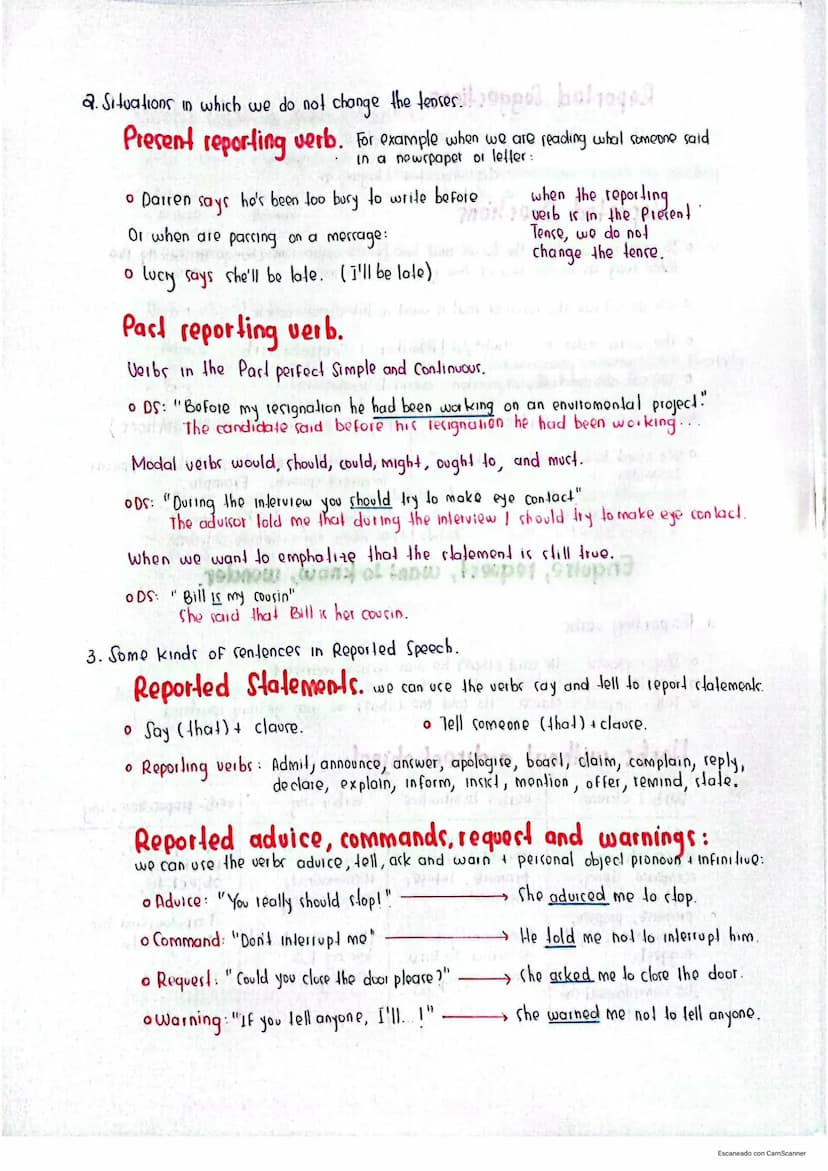 2. Situations in which we do not change the tenses.
Present reporting verb. For example when we are reading what someone said
in a newspaper or letter:
o Darren says he's been too busy to write before
when the reporting
verb is in the Present
Tense, we do not
change the tense.
Or when are passing on a message:
o Lucy says she'll be late. (I'll be late)
Past reporting verb.
Verbs in the Past perfect Simple and Continuous.
o DS: "Before my resignation he had been working on an enviromental project."
The candidate said before his resignation he had been working...
Modal verbs would, should, could, might, ought to, and must.
o DS: "During the interview you should try to make eye contact"
The advisor told me that during the interview I should try to make eye contact.
When we want to emphatize that the statement is still true.
o DS: "Bill is my cousin"
She said that Bill is her cousin.
3. Some kinds of sentences in Reported Speech.
Reported Statements. we can use the verbs say and tell to report statements.
o Say (that) + clause.
o Tell someone (that) + clause.
o Reporting verbs: Admit, announce, answer, apologise, boast, claim, complain, reply,
declare, explain, inform, insist, mention, offer, remind, state.
Reported advice, commands, request and warnings:
we can use the verbs advice, tell, ask and warn + personal object pronoun + infinitive:
o Advice: "You really should stop!" → She adviced me to stop.
o Command: "Don't interrupt me" → He told me not to interrupt him.
o Request: "Could you close the door please?" → she asked me to close the door.
o Warning: "If you tell anyone, I'll...!" → she warned me not to tell anyone.
Escaneado con CamScanner